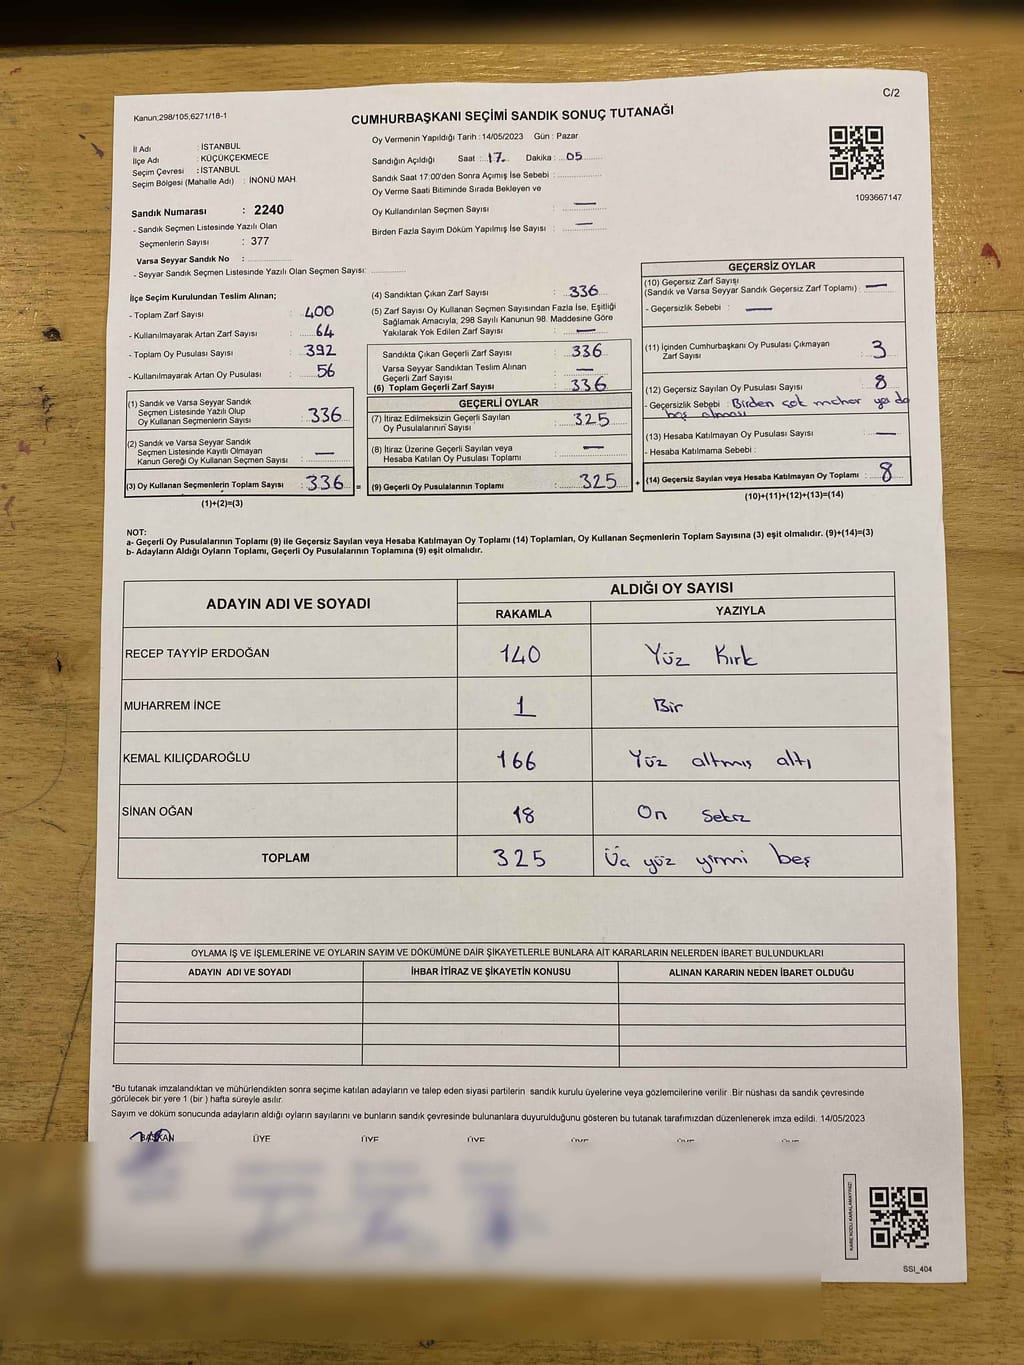 C/2
Kanun,298/105,6271/18-1
CUMHURBAŞKANI SEÇİMİ SANDIK SONUÇ TUTANAĞI
İl Adı : İSTANBUL
İlçe Adı : KÜÇÜKÇEKMECE
Seçim Çevresi : İSTANBUL
Seçim Bölgesi (Mahalle Adı) : İNÖNÜ MAH.
Sandık Numarası : 2240
- Sandık Seçmen Listesinde Yazılı Olan
Seçmenlerin Sayısı : 377
Varsa Seyyar Sandık No :
- Seyyar Sandık Seçmen Listesinde Yazılı Olan Seçmen Sayısı:
Oy Vermenin Yapıldığı Tarih : 14/05/2023 Gün : Pazar
Sandığın Açıldığı Saat : 17 Dakika : 05
Sandık Saat 17:00'den Sonra Açımış İse Sebebi :
Oy Verme Saati Bitiminde Sırada Bekleyen ve
Oy Kullandırılan Seçmen Sayısı : —
Birden Fazla Sayım Döküm Yapılmış İse Sayısı : —
1093667147
İlçe Seçim Kurulundan Teslim Alınan;
- Toplam Zarf Sayısı : 400
- Kullanılmayarak Artan Zarf Sayısı : 64
- Toplam Oy Pusulası Sayısı : 392
- Kullanılmayarak Artan Oy Pusulası : 56
(1) Sandık ve Varsa Seyyar Sandık
Seçmen Listesinde Yazılı Olup
Oy Kullanan Seçmenlerin Sayısı : 336
(2) Sandık ve Varsa Seyyar Sandık
Seçmen Listesinde Kayıtlı Olmayan
Kanun Gereği Oy Kullanan Seçmen Sayısı : —
(3) Oy Kullanan Seçmenlerin Toplam Sayısı : 336 =
(1)+(2)=(3)
(4) Sandıktan Çıkan Zarf Sayısı : 336
(5) Zarf Sayısı Oy Kullanan Seçmen Sayısından Fazla İse, Eşitliği
Sağlamak Amacıyla, 298 Sayılı Kanunun 98. Maddesine Göre
Yakılarak Yok Edilen Zarf Sayısı : —
Sandıkta Çıkan Geçerli Zarf Sayısı : 336
Varsa Seyyar Sandıktan Teslim Alınan
Geçerli Zarf Sayısı : —
(6) Toplam Geçerli Zarf Sayısı : 336
GEÇERLİ OYLAR
(7) İtiraz Edilmeksizin Geçerli Sayılan
Oy Pusulalarının Sayısı : 325
(8) İtiraz Üzerine Geçerli Sayılan veya
Hesaba Katılan Oy Pusulası Toplamı : —
(9) Geçerli Oy Pusulalarının Toplamı : 325 +
GEÇERSİZ OYLAR
(10) Geçersiz Zarf Sayısı
(Sandık ve Varsa Seyyar Sandık Geçersiz Zarf Toplamı) : —
- Geçersizlik Sebebi : —
(11) İçinden Cumhurbaşkanı Oy Pusulası Çıkmayan
Zarf Sayısı : 3
(12) Geçersiz Sayılan Oy Pusulası Sayısı : 8
- Geçersizlik Sebebi : Birden çok mühür ya da
boş olması
(13) Hesaba Katılmayan Oy Pusulası Sayısı : —
- Hesaba Katılmama Sebebi :
(14) Geçersiz Sayılan veya Hesaba Katılmayan Oy Toplamı : 8
(10)+(11)+(12)+(13)=(14)
NOT:
a- Geçerli Oy Pusulalarının Toplamı (9) ile Geçersiz Sayılan veya Hesaba Katılmayan Oy Toplamı (14) Toplamları, Oy Kullanan Seçmenlerin Toplam Sayısına (3) eşit olmalıdır. (9)+(14)=(3)
b- Adayların Aldığı Oyların Toplamı, Geçerli Oy Pusulalarının Toplamına (9) eşit olmalıdır.
ADAYIN ADI VE SOYADI ALDIĞI OY SAYISI
RAKAMLA YAZIYLA
RECEP TAYYİP ERDOĞAN 140 Yüz Kırk
MUHARREM İNCE 1 Bir
KEMAL KILIÇDAROĞLU 166 Yüz altmış altı
SİNAN OĞAN 18 On Sekiz
TOPLAM 325 Üç yüz yirmi beş
OYLAMA İŞ VE İŞLEMLERİNE VE OYLARIN SAYIM VE DÖKÜMÜNE DAİR ŞİKAYETLERLE BUNLARA AİT KARARLARIN NELERDEN İBARET BULUNDUKLARI
ADAYIN ADI VE SOYADI İHBAR İTİRAZ VE ŞİKAYETİN KONUSU ALINAN KARARIN NEDEN İBARET OLDUĞU
*Bu tutanak imzalandıktan ve mühürlendikten sonra seçime katılan adayların ve talep eden siyasi partilerin sandık kurulu üyelerine veya gözlemcilerine verilir. Bir nüshası da sandık çevresinde
görülecek bir yere 1 (bir ) hafta süreyle asılır.
Sayım ve döküm sonucunda adayların aldığı oyların sayılarını ve bunların sandık çevresinde bulunanlara duyurulduğunu gösteren bu tutanak tarafımızdan düzenlenerek imza edildi. 14/05/2023
BAŞKAN ÜYE ÜYE ÜYE ÜYE ÜYE ÜYE
KARE KODU KARALAMAYINIZ!
SSI_404